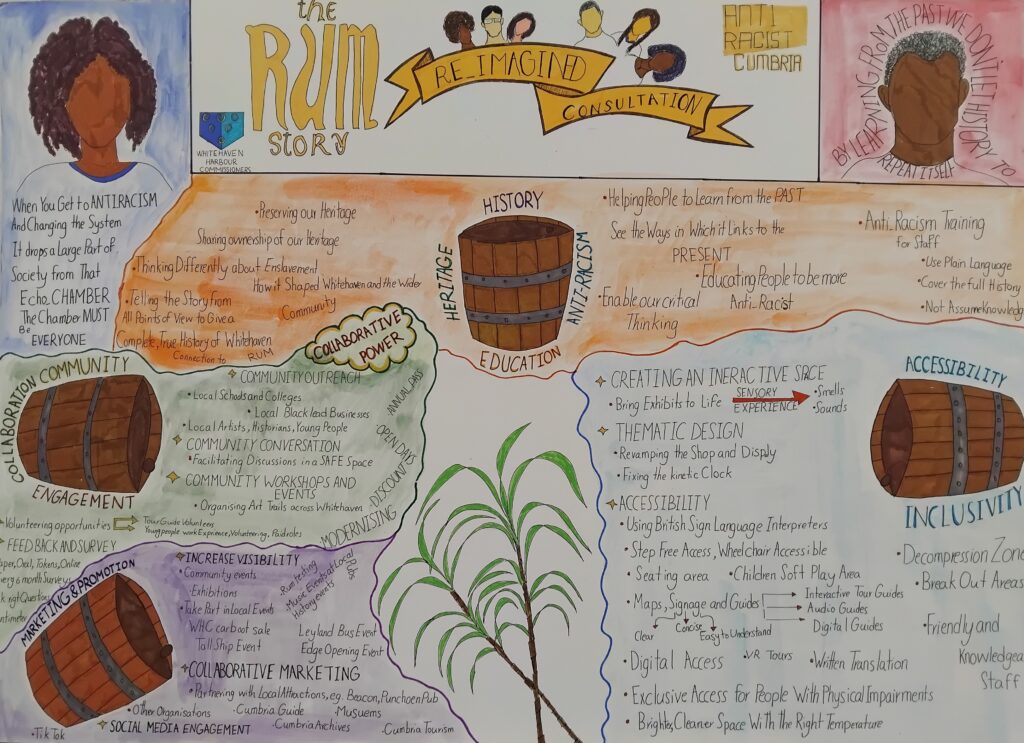 the
RUM
STORY
WHITEHAVEN
HARBOUR
COMMISSIONERS
RE_IMAGINED
CONSULTATION
ANTI
RACIST
CUMBRIA
BY LEARNING FROM THE PAST WE DON'T LET HISTORY TO
REPEAT ITSELF
When You Get to ANTIRACISM
And Changing the System
It drops a Large Part of
Society from That
Echo. CHAMBER
The Chamber MUST
Be
EVERYONE
•Preserving our Heritage
Sharing ownership of our Heritage
•Thinking Differently about Enslavement
How it Shaped Whitehaven and the Wider
Community
•Telling the Story from
All Points of View to Give a
Complete, True History of Whitehaven
Connection to RUM
HISTORY
HERITAGE
ANTI-RACISM
EDUCATION
•Helping People to Learn from the PAST
See the Ways in Which it Links to the
PRESENT
•Educating People to be more
Anti-Racist
•Enable our critical
Thinking
•Anti-Racism Training
For Staff
•Use Plain Language
•Cover the full History
•Not Assume Knowledg
COLLABORATIVE
POWER
COMMUNITY
COLLABORATION
ENGAGEMENT
COMMUNITY OUTREACH
•Local Schools and Colleges
•Local Black lead Businesses
•Local Artists, Historians, Young People
COMMUNITY CONVERSATION
•Facilitating Discussions in a SAFE Space
COMMUNITY WORKSHOPS AND
EVENTS
•Organising Art Trails across Whitehaven
ANNUAL PASS
OPEN DAYS
DISCOUNT
MODERNISING
Volunteering opportunities
Tour Guide Volunteers
Young people work Exprience, Volunteering, Paid roles
FEED BACK AND SURVEY
Oral, Tokens, Online
6 month Surveys
MARKETING & PROMOTION
INCREASE VISIBILITY
•Community events
•Exhibitions
•Take Part in Local Events
WHC car boot sale
Tall Ship Event
Leyland Bus Event
Edge Opening Event
•Rum testing
•Music Events at Local Pubs
History events
COLLABORATIVE MARKETING
•Partnering with Local Attractions, eg. Beacon, Puncheon Pub
•Other Organisations
•Cumbria Guide
•Musuems
SOCIAL MEDIA ENGAGEMENT
•Cumbria Archives
•Cumbria Tourism
•Tik Tok
CREATING AN INERACTIVE SPACE
•Bring Exhibits to Life
SENSORY
EXPERIENCE
•Smells
•Sounds
THEMATIC DESIGN
•Revamping the Shop and Disply
•Fixing the kinetic Clock
ACCESSIBILITY
•Using British Sign Language Interpreters
•Step Free Access, Wheelchair Accessible
•Seating area
•Children Soft Play Area
•Maps, Signage and Guides
Interactive Tour Guides
Audio Guides
Digital Guides
Clear
Concise
Easy to Understand
•Digital Access
•VR Tours
•Written Translation
•Exclusive Access for People With Physical Impairments
•Brighter, Cleaner Space With the Right Temperature
ACCESSIBILITY
INCLUSIVITY
•Decompression Zone
•Break Out Areas
•Friendly and
Knowledgea
Staff